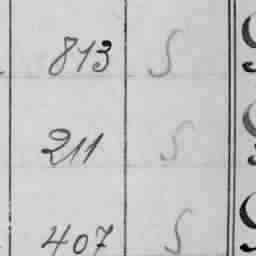 813 S
211 S
407 S